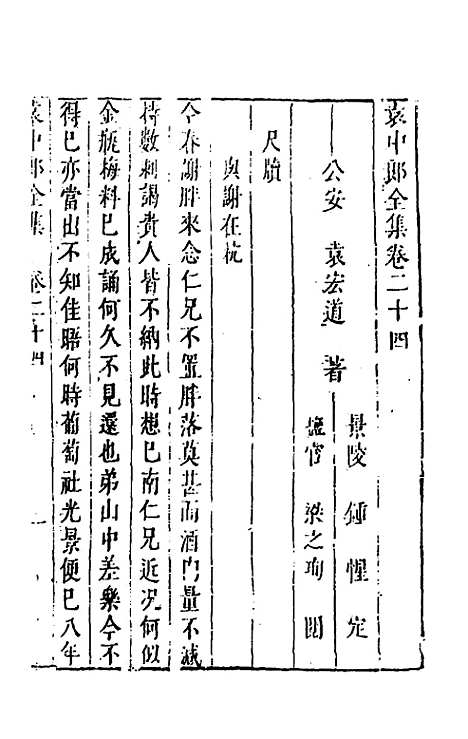 袁中郎全集卷二十四
公安 袁宏道 著
景陵 鍾惺 定
鹽官 梁之珣 閱
尺牘
與謝在杭
今春謝胖來念仁兄不置胖落莫甚而酒肉量不減
持數刺謁貴人皆不納此時想已南仁兄近況何似
金瓶梅料已成誦何久不見還也弟山中差樂今不
得已亦當出不知佳晤何時葡萄社光景便已八年
袁中郎全集 卷二十四 一